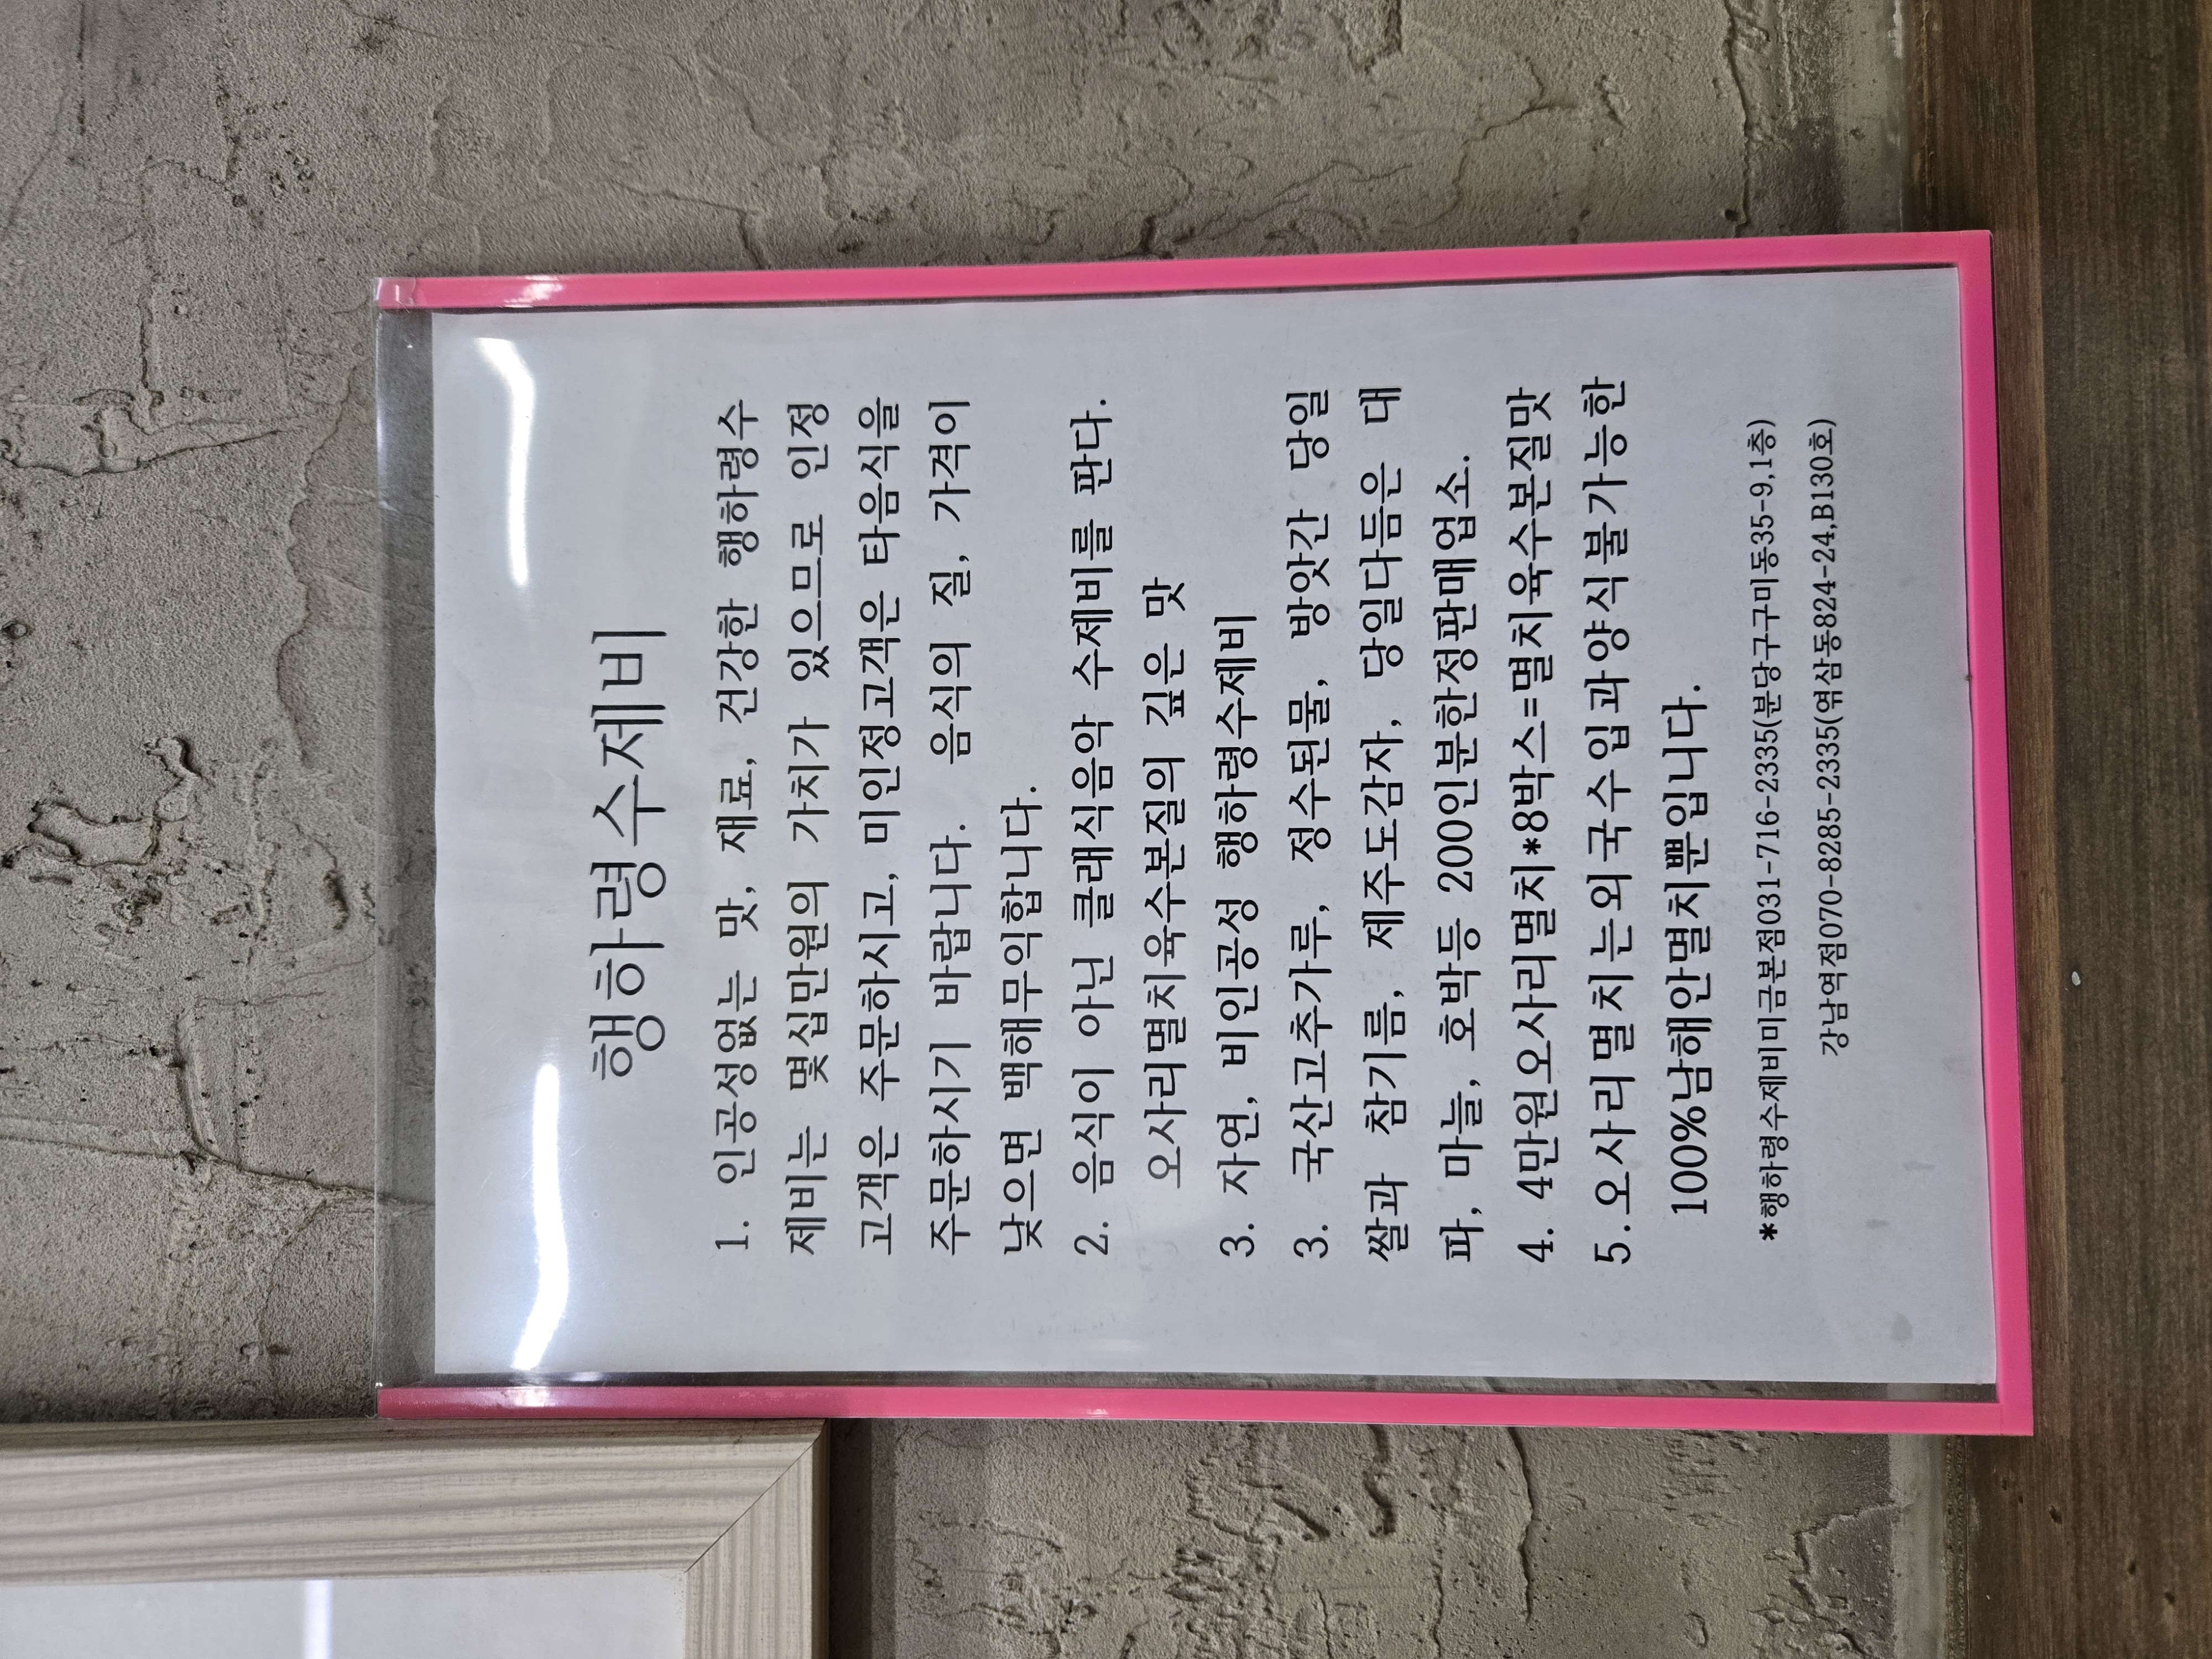 행하령수제비
1. 인공성없는 맛, 재료, 건강한 행하령수
제비는 몇십만원의 가치가 있으므로 인정
고객은 주문하시고, 미인정고객은 타음식을
주문하시기 바랍니다. 음식의 질, 가격이
낮으면 백해무익합니다.
2. 음식이 아닌 클래식음악 수제비를 판다.
오사리멸치육수본질의 깊은 맛
3. 자연, 비인공성 행하령수제비
3. 국산고추가루, 정수된물, 방앗간 당일
쌀과 참기름, 제주도감자, 당일다듬은 대
파, 마늘, 호박등 200인분한정판매업소.
4. 4만원오사리멸치*8박스=멸치육수본질맛
5.오사리멸치는외국수입과양식불가능한
100%남해안멸치뿐입니다.
*행하령수제비미금본점031-716-2335(분당구구미동35-9,1층)
강남역점070-8285-2335(엮삼동824-24,B130호)